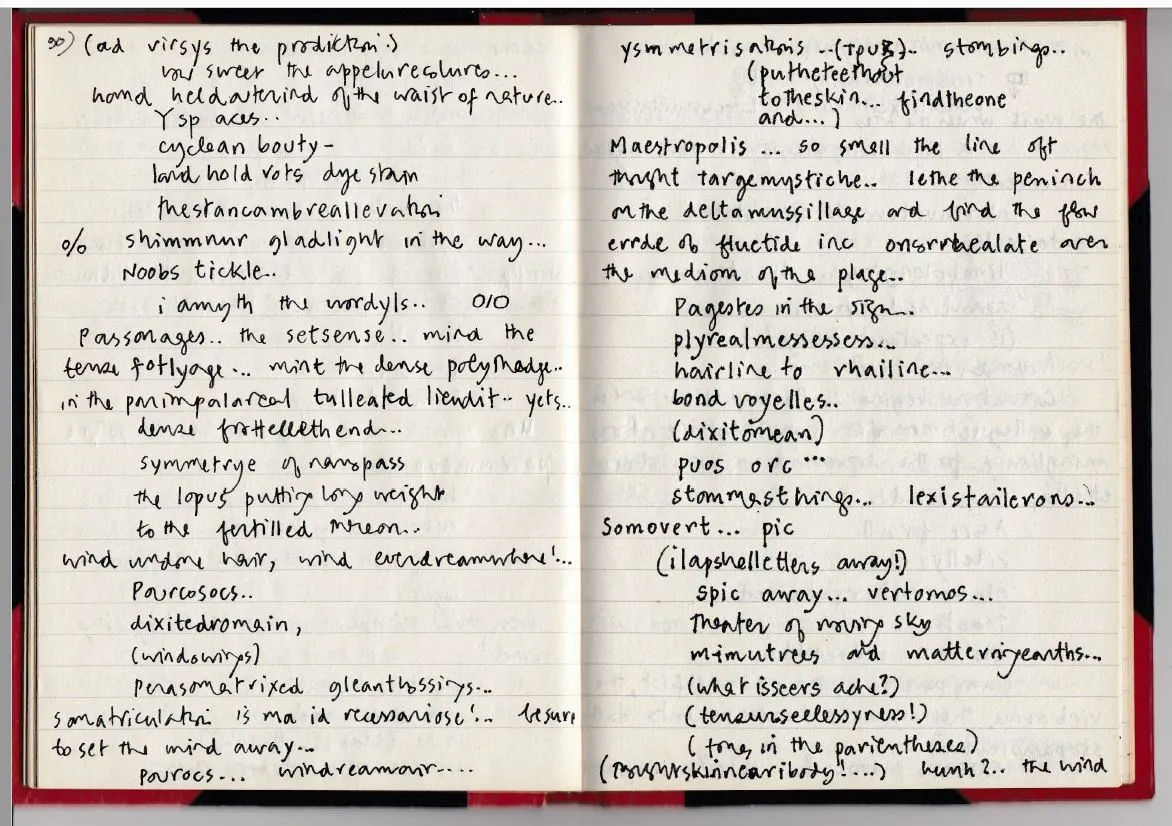 (ad virsys the prodiction:)
vow sweet the
hand heldoutwind of the waist of nature..
Ysp aces..
cyclean bouty-
land hold vots dye stain
thestancambreallevation
% shimmnur gladlight in the way...
Noobs tickle..
i amyth the wordyls.. 010
Passonages.. the setsense.. mind the
tense fotlyage... mint the dense
in the tulleated liendit.. yets..
dense
symmetrye of nanopass
the lopus putting long weight
to the fertilled
wind undone hair, wind everdreamwhere!...
Pourcosocs..
dixitedromain,
(windowings)
Perasomatrixed
somatriculation is maid necessariose!... besure
to set the mind away...
pourocs... windreamour....
ysmmetrisations ..(TPUS).. stombings..
(putheteethout
totheskin... findtheone
and...)
Maestropolis ... so smell the line oft
thought targemystiche.. lethe the peninch
on the deltamussillage and find the flow
errde of fluctide inc over
the mediom of the plage..
Pagestes in the sign..
plyrealmessessess...
hairline to rhailine...
bond voyelles..
(dixitomean)
puos orc ...
stommasthings... lexistailerons...
Somovert... pic
(ilapshelletters away!)
spic away... vertomos...
Theater of moving sky
mimutrees and matterningearths...
(what isseers ache?)
(tensurseelessyness!)
(tones in the parientheses)
hunh?.. the wind